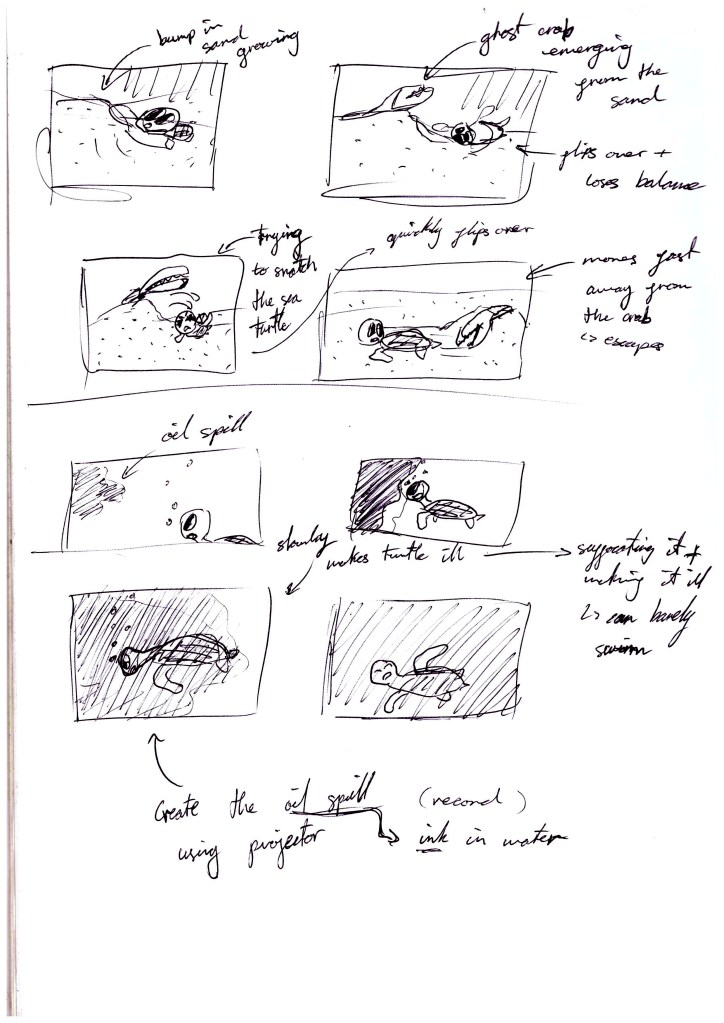 bump in
sand
growing
ghost crab
emerging
from the
sand
flips over +
loses balance
trying
to snatch
the sea
turtle
quickly flips over
moves fast
away from
the crab
↳ escapes
oil spill
slowly
makes turtle ill
suffocating it +
making it ill
↳ can barely
swim
Create the oil spill (record)
using projector
ink in water